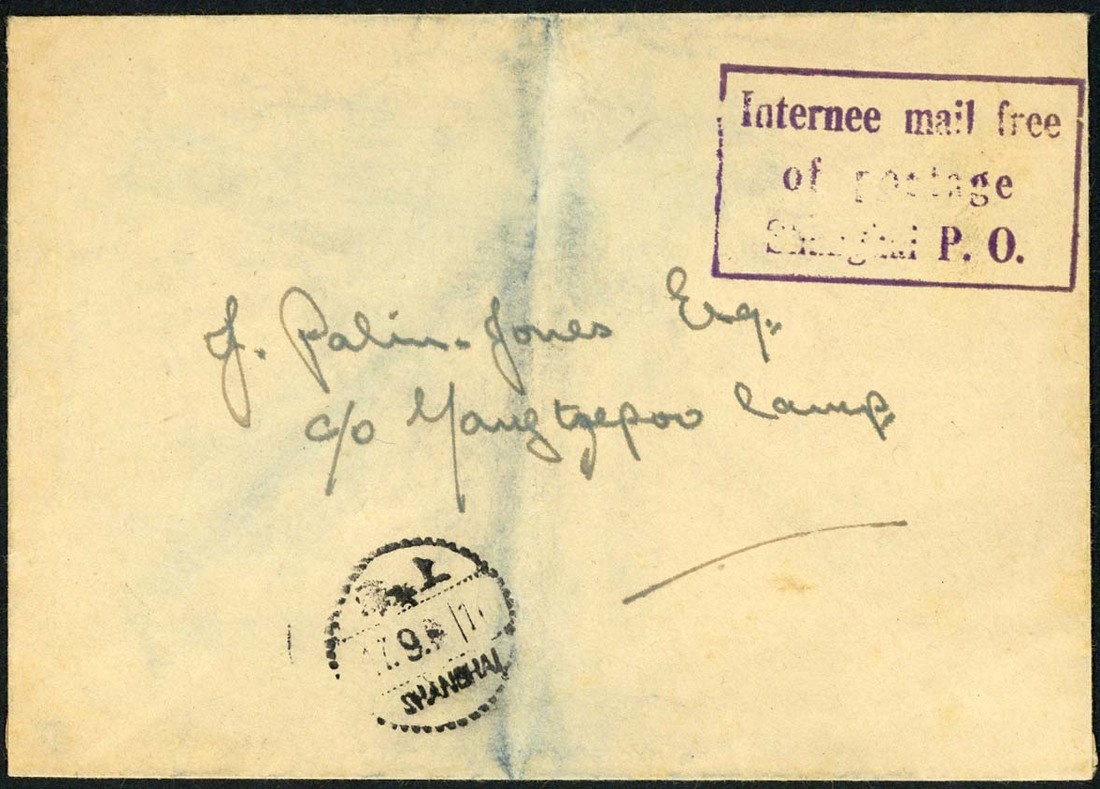 Internee mail free
of postage
Shanghai P. O.
J. Palin-Jones Esq.
c/o Yangtzepoo Camp.
SHANGHAI